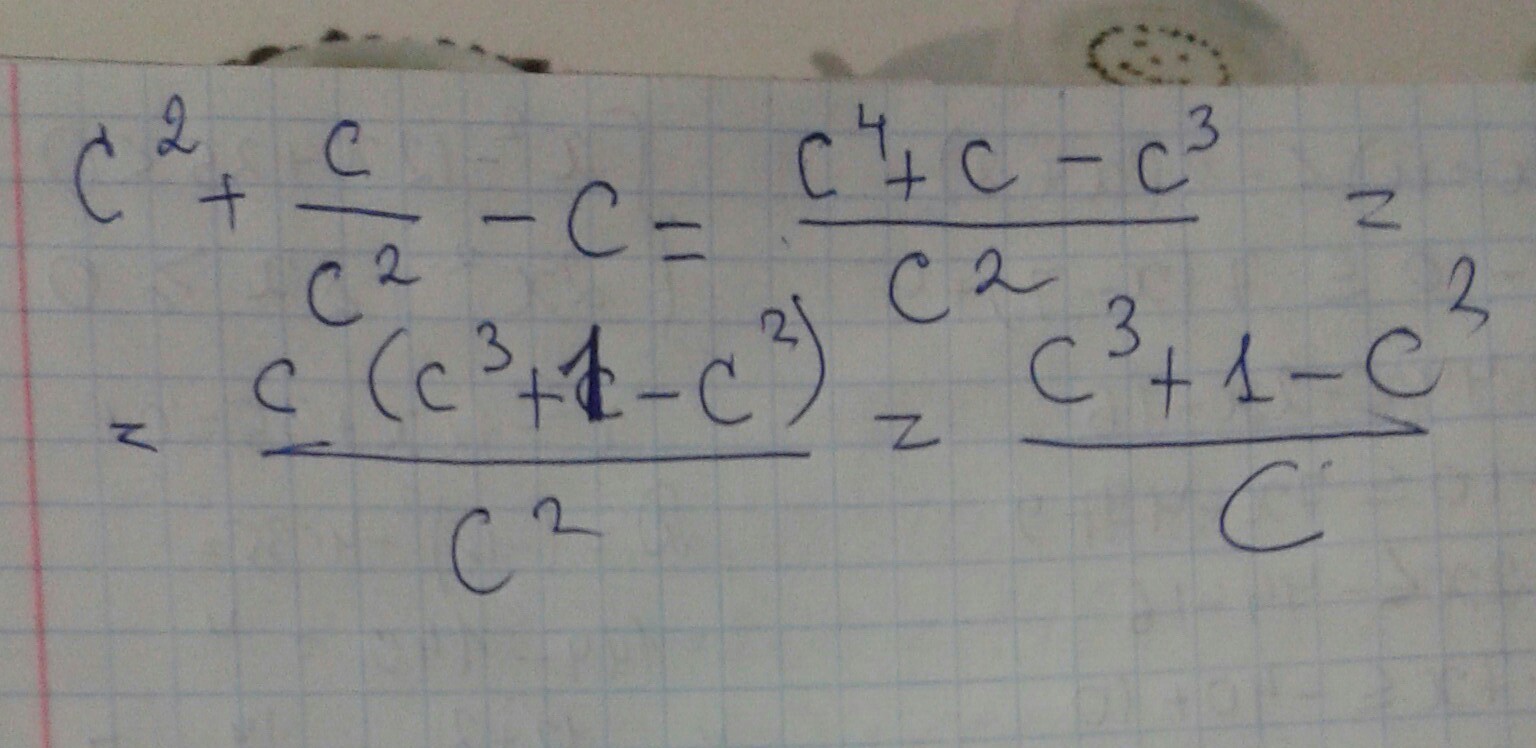 c² + c/c² - c = (c⁴ + c - c³)/c² =
= c(c³ + 1 - c²)/c² = (c³ + 1 - c²)/c